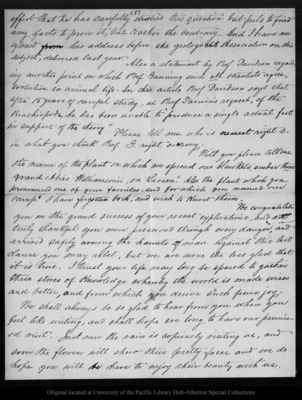 (2)
effect that he has carefully studied this question but fails to find
any facts to prove it, but rather the contrary. And I have an
extract from his address before the geologist Association on this
subject, delivered last year. Also a statement by Prof Davidson regard
ing another point on which Prof Dunning said all scientists agree,
Evolution in animal life. In this article Prof Davidson says that
after 15 years of careful study, at Prof Darwins request, of the
Brachiopods, he has been unable to produce a single actual fact
in support of the theory. Please tell me who is nearest right &
in what you think Prof D. right or wrong.
Will you please tell me
the name of the plant on which we spread our blankets under those
grand Abies Williamsonii, on Lassen? Also the plant which you
pronounced one of your favorites, and for which you named our
camp? I have forgotten both, and wish to know them.
We congratulate
you on the grand success of your recent explorations, and are
truly thankful you were preserved through every danger, and
arrived safely among the haunts of man. Against this last
clause you may rebel, but we are none the less glad that
it is true. I trust your life may long be spared to gather
these stores of Knowledge whereby the world is made wiser
and better, and from which you derive such pure joy.
We shall always be so glad to hear from you when you
feel like writing, and shall hope ere long to have our promis-
ed visit. Just now the rain is copiously visiting us, and
soon the flowers will show their pretty faces and we do
hope you will be here to enjoy their beauty with us.
Original located at University of the Pacific Library Holt-Atherton Special Collections